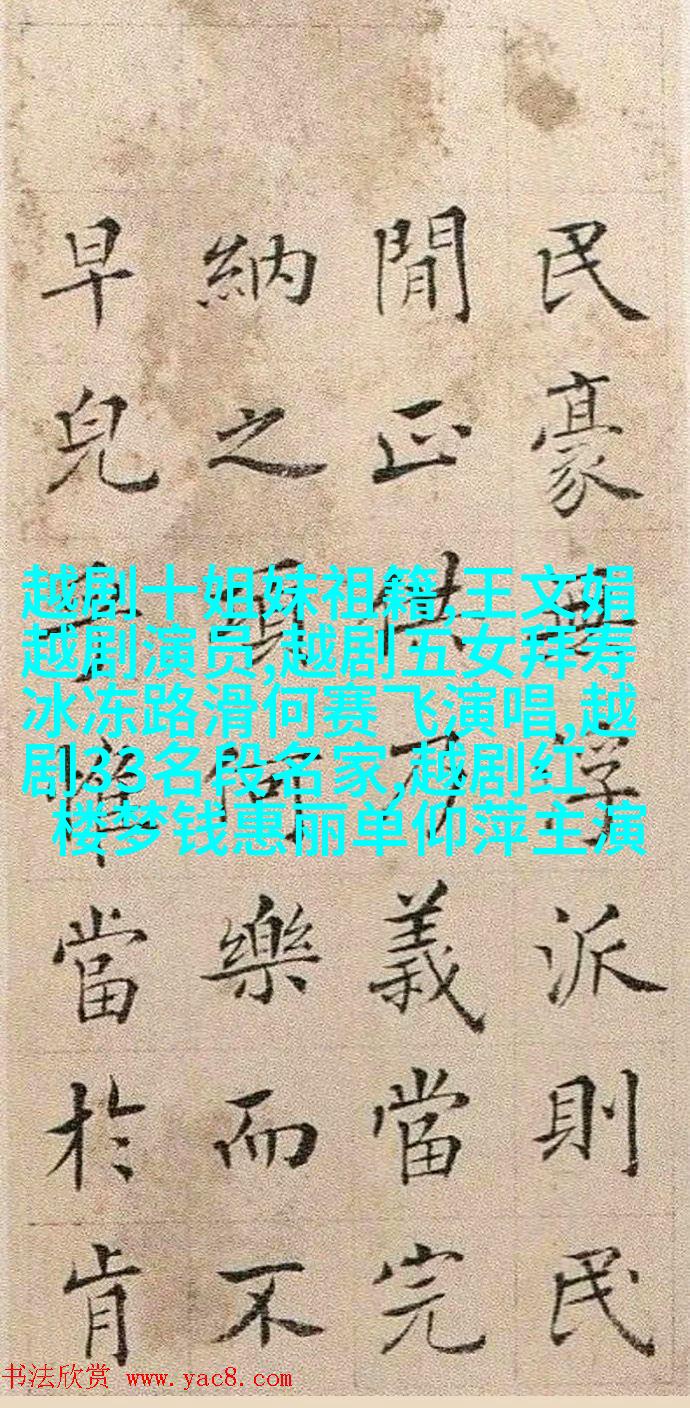 民豪無浮派則民
閒正供乃義當完
納之項何樂而不
早兒當於肯
越剧十姐妹祖籍,王文娟
越剧演员,越剧五女拜寿
冰冻路滑何赛飞演唱,越
剧33名段名家,越剧红
楼梦钱惠丽单仰萍主演
书法欣赏 www.yac8.com